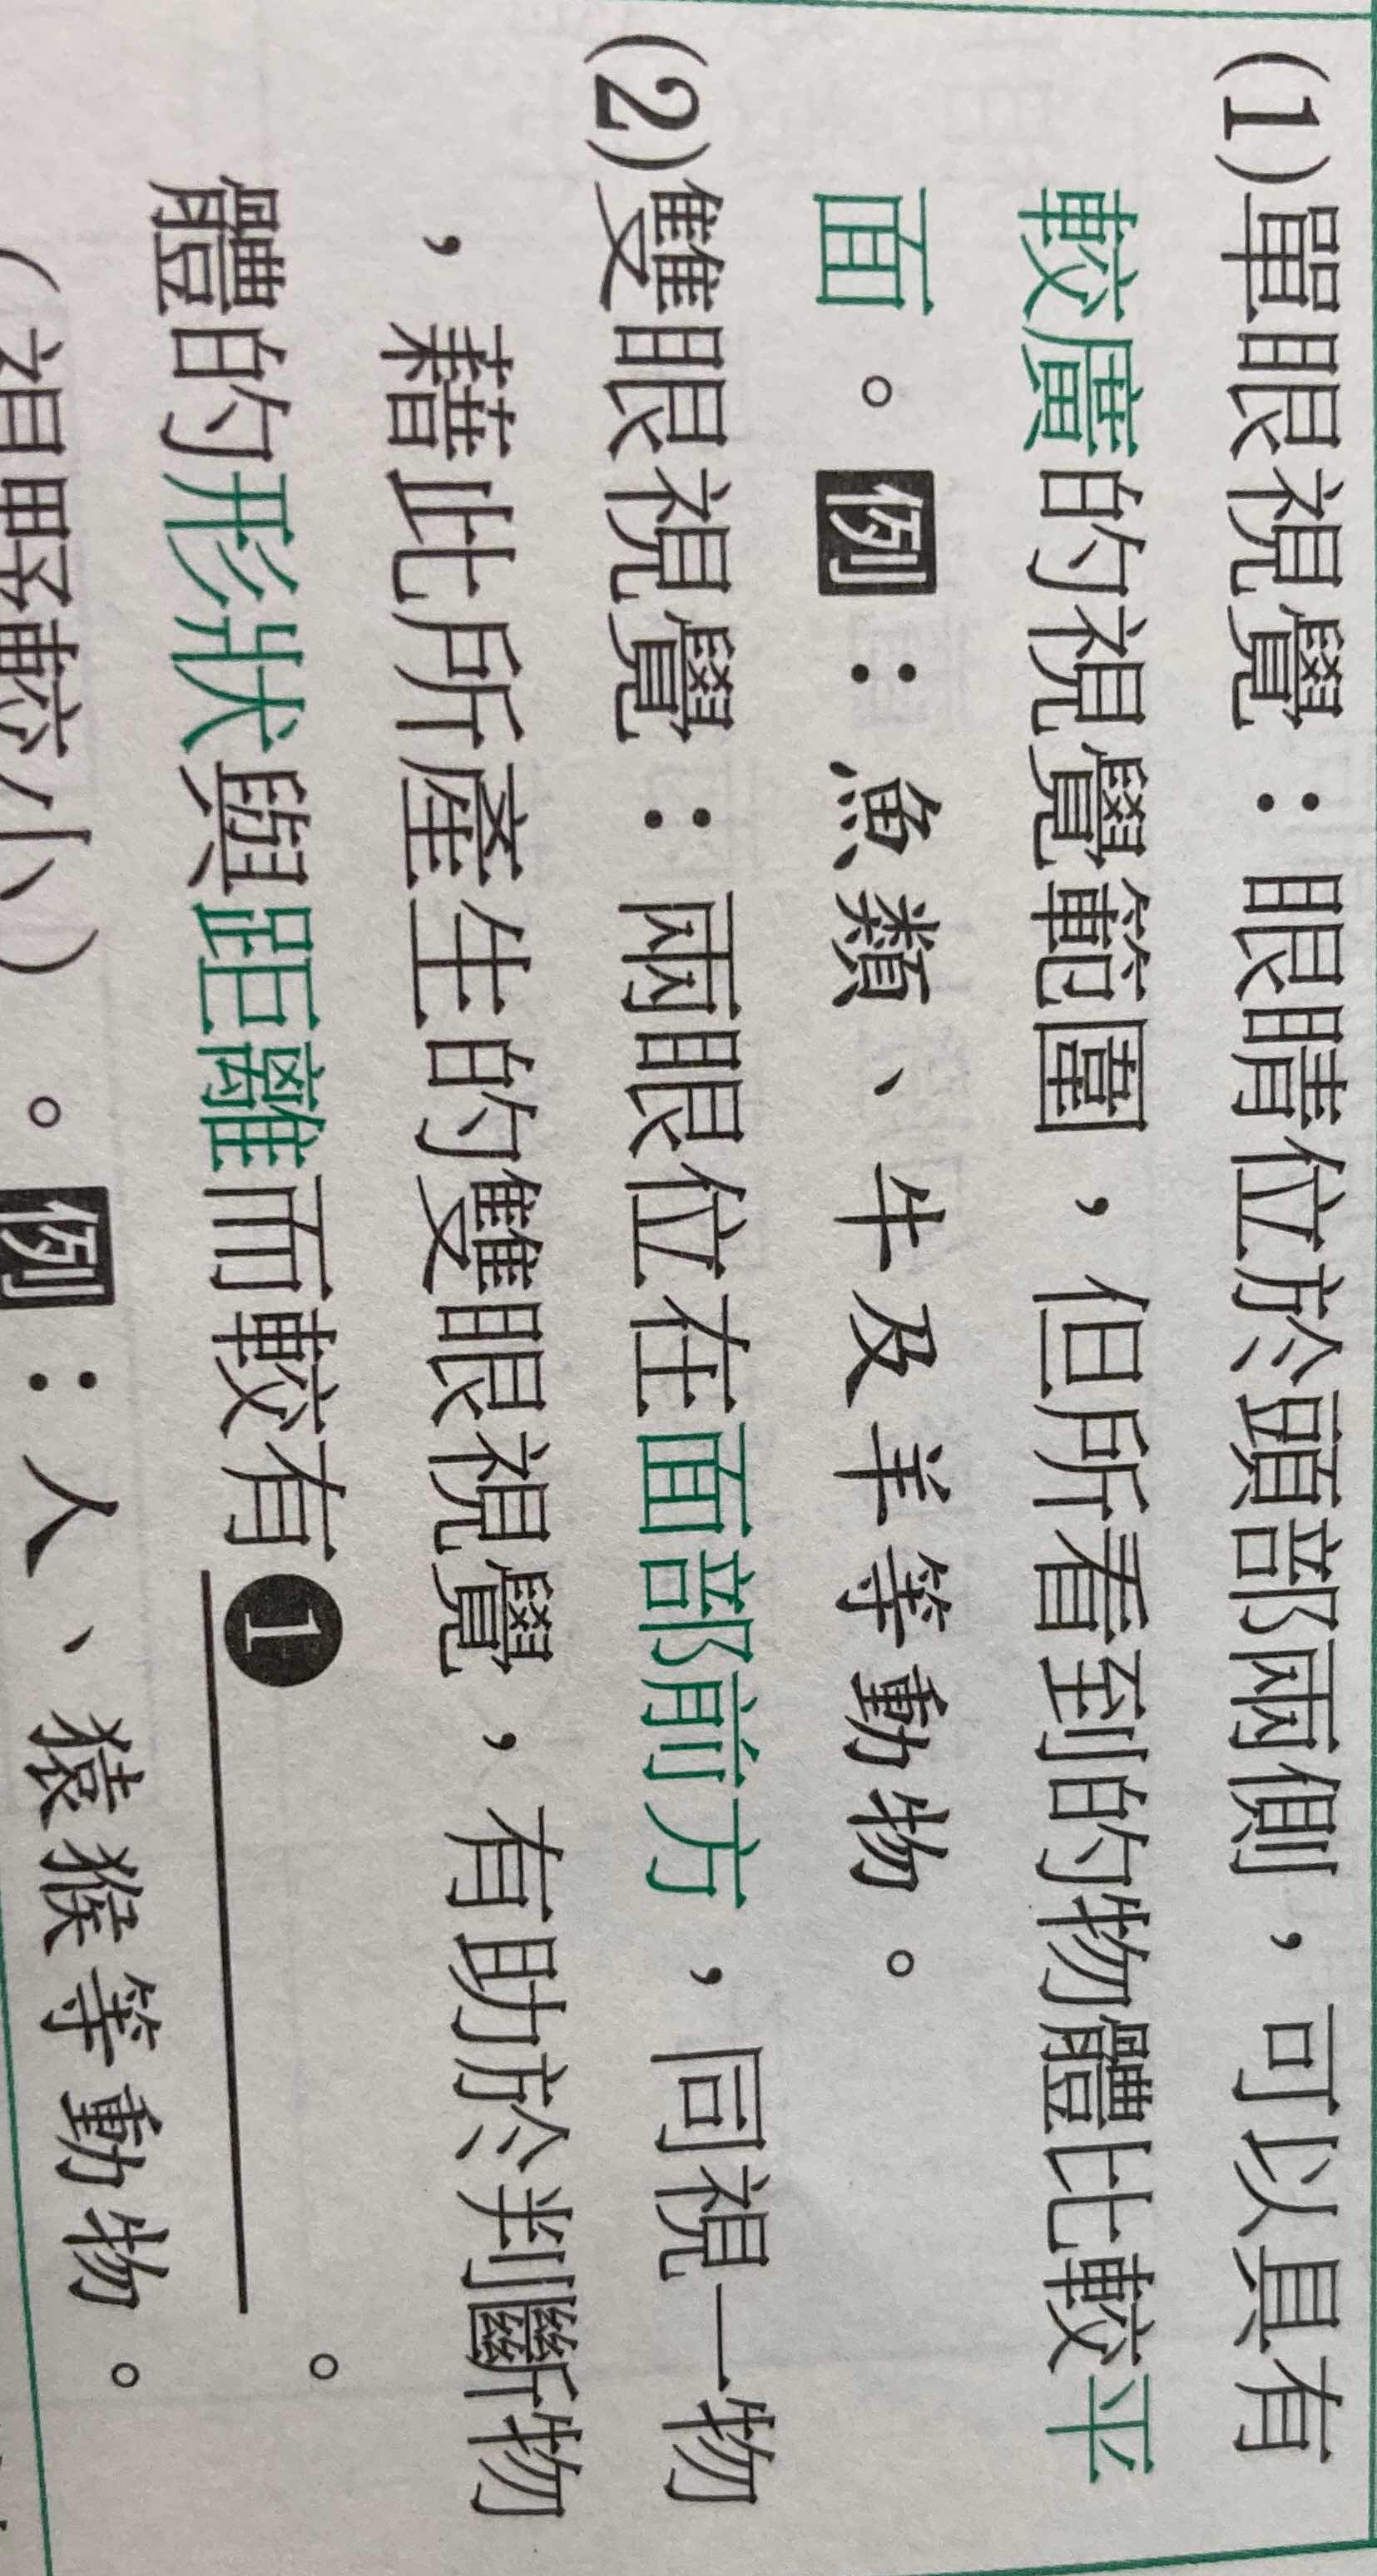 (1)單眼視覺：眼睛位於頭部兩側，可以具有
較廣的視覺範圍，但所看到的物體比較平
面。例：魚類、牛及羊等動物。
(2)雙眼視覺：兩眼位在面部前方，同視一物
，藉此所產生的雙眼視覺，有助於判斷物
體的形狀與距離而較有❶＿＿＿＿＿。
（視野較小）。例：人、猿猴等動物。